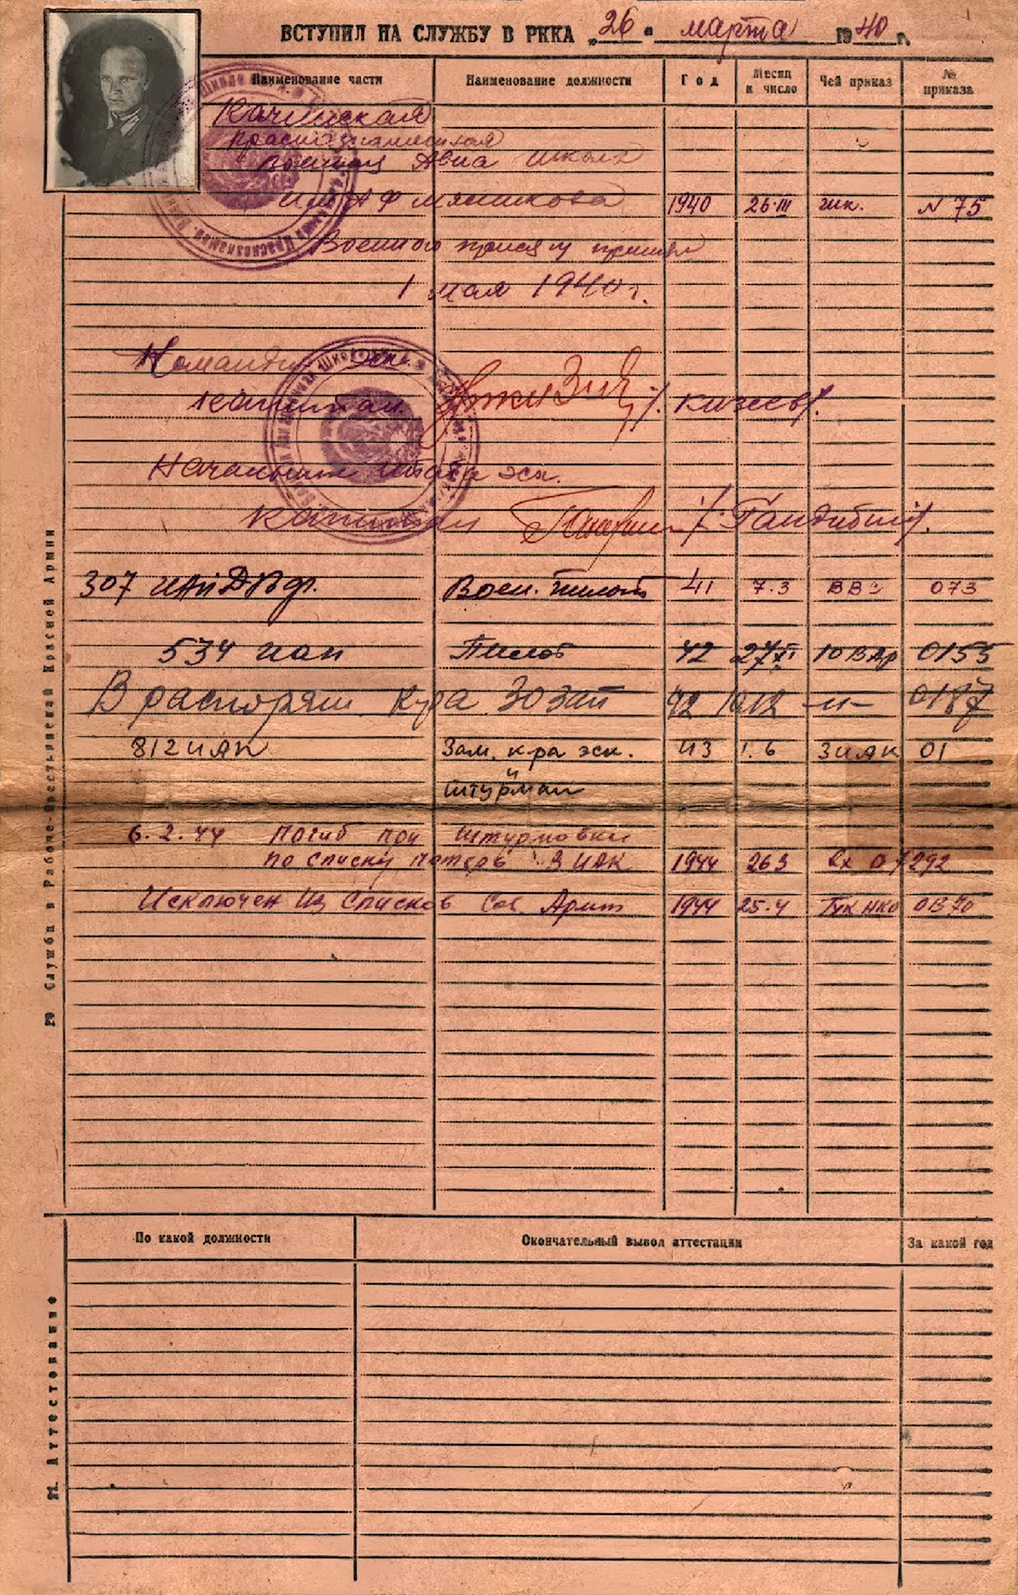 ВСТУПИЛ НА СЛУЖБУ В РККА „26" марта 1940 г.
Наименование части Наименование должности Год Месяц и число Чей приказ № приказа
Качинская
Краснознаменная
Военная Авиа школа
им АФ Мясникова 1940 26·III шк. N 75
Военного присягу принял
1 мая 1940 г.
Командир эск.
капитан /. Кизеев/.
Начальник штаба эск.
капитан /.
307 иап ДВф. Воен. пилот 41 7.3 ВВС 073
534 иап Пилот 42 27/XI 10 ВАр 0155
В распоряж к-ра 30 зап 42 10/12 -"- 0187
812 ИАК Зам. к-ра эск. 43 1.6 3 ИАК 01
и
штурман
6.2.44 погиб при штурмовки
по списку потерь 3 ИАК 1944 26 3 Вх 07292
Исключен из списков Сов. Арм 1944 25.4 ГУК НКО 0870
20 Служба в Рабоче-Крестьянской Красной Армии
По какой должности Окончательный вывод аттестации За какой год
21. Аттестование